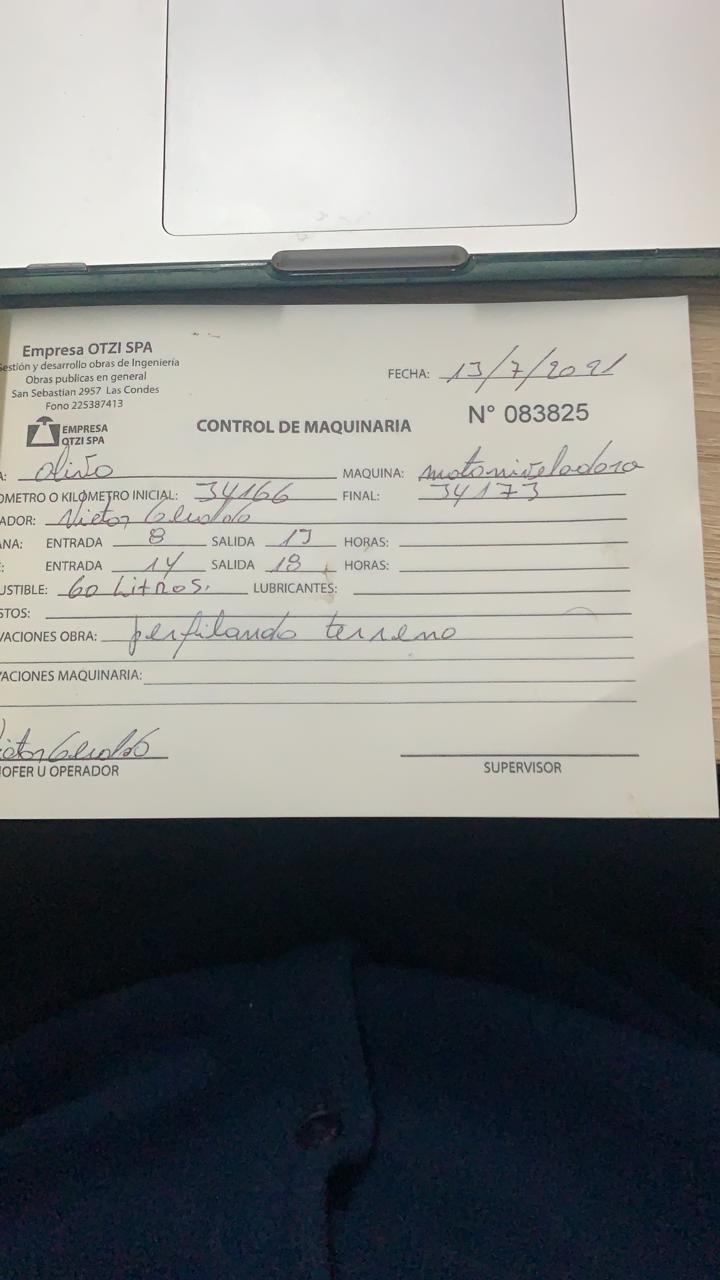 Empresa OTZI SPA
estión y desarrollo obras de Ingeniería
Obras publicas en general
San Sebastian 2957 Las Condes
Fono 225387413
EMPRESA
OTZI SPA
FECHA: 13/7/2021
CONTROL DE MAQUINARIA
N° 083825
A: Olivo MAQUINA: motoniveladora
OMETRO O KILÓMETRO INICIAL: 34166 FINAL: 34173
ADOR: Victor
ANA: ENTRADA 8 SALIDA 13 HORAS:
E: ENTRADA 14 SALIDA 18 HORAS:
USTIBLE: 60 Litros. LUBRICANTES:
STOS:
VACIONES OBRA: perfilando terreno
VACIONES MAQUINARIA:
OFER U OPERADOR
SUPERVISOR